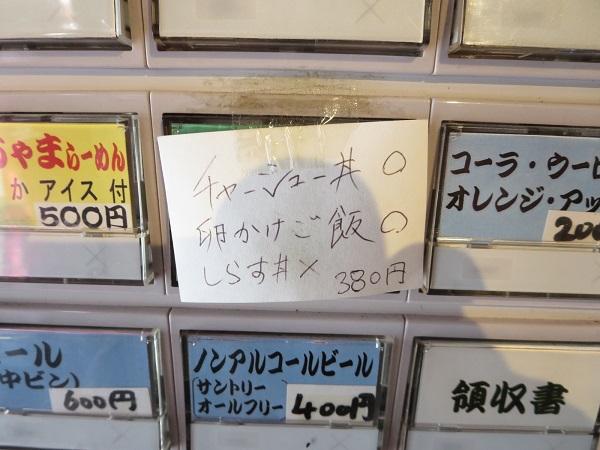 ちゃまらーめん
か アイス 付
500円
チャーシュー丼 ○
卵かけご飯 ○
しらす丼 × 380円
コーラ・ウー
オレンジ・アッ
200
ール
中ビン)
600円
ノンアルコールビール
(サントリー
オールフリー)
400円
領収書